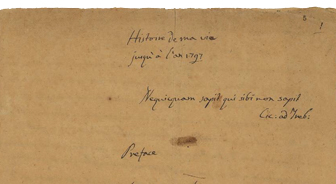 8
1
Histoire de ma vie
jusqu'à l'an 1797
Nequicquam sapit qui sibi non sapit
Cic. ad Treb:
Preface